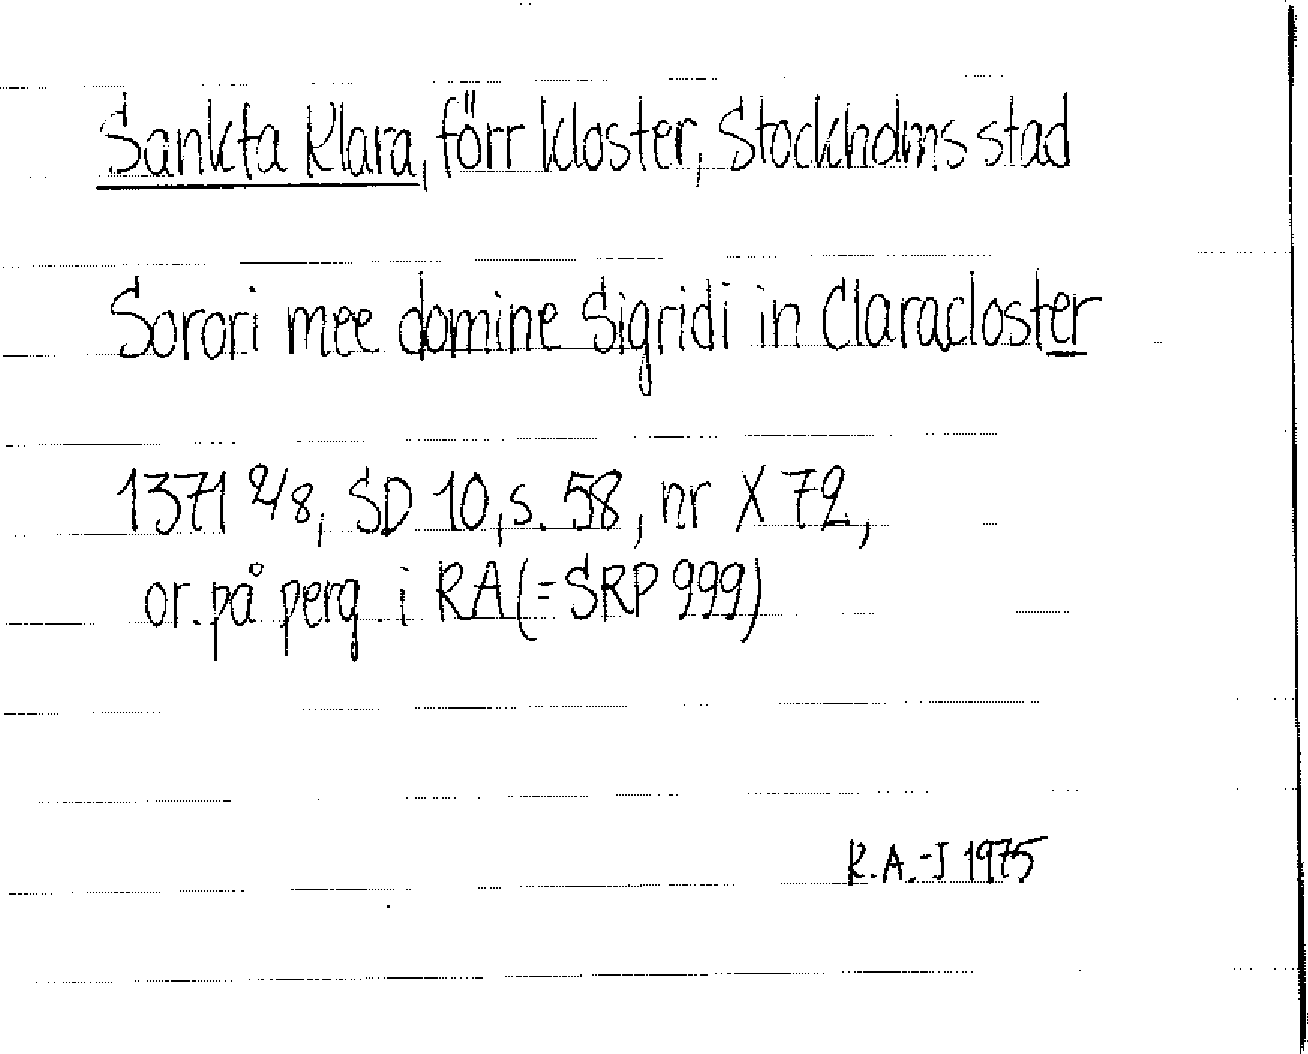 Sankta Klara, förr kloster, Stockholms stad
Sorori mee domine Sigridi in Claracloster
1371 2/8, SD 10, s. 58, nr X 72,
or. på perg. i RA (= SRP 999)
R.A.-J 1975